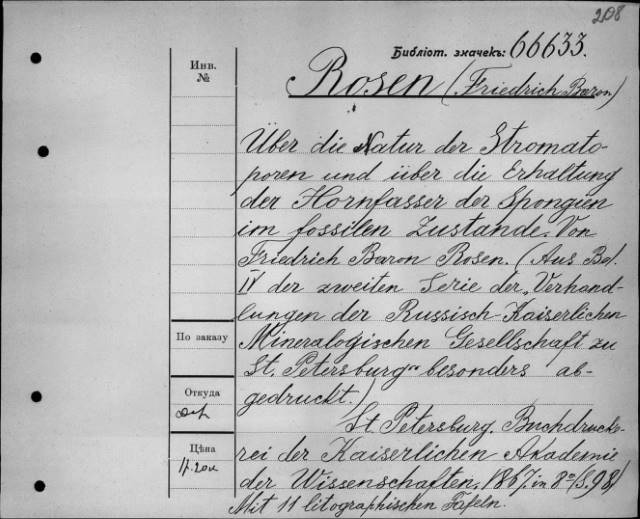 208
Библіот. значекъ: 66633.
Инв.
№
Rosen (Friedrich Baron)
Über die Natur der Stromato-
poren und über die Erhaltung
der Hornfasser der Spongien
im fossilen Zustande. Von
Friedrich Baron Rosen. (Aus Bd.
IV der zweiten Serie der „Verhand-
lungen der Russisch-Kaiserlichen
По заказу
Mineralogischen Gesellschaft zu
St. Petersburg" besonders ab-
Откуда
gedruckt.)
St. Petersburg. Buchdrucke-
Цѣна
rei der Kaiserlichen Akademie
der Wissenschaften, 1867. in 8º (S. 98)
Mit 11 litographischen Tafeln.